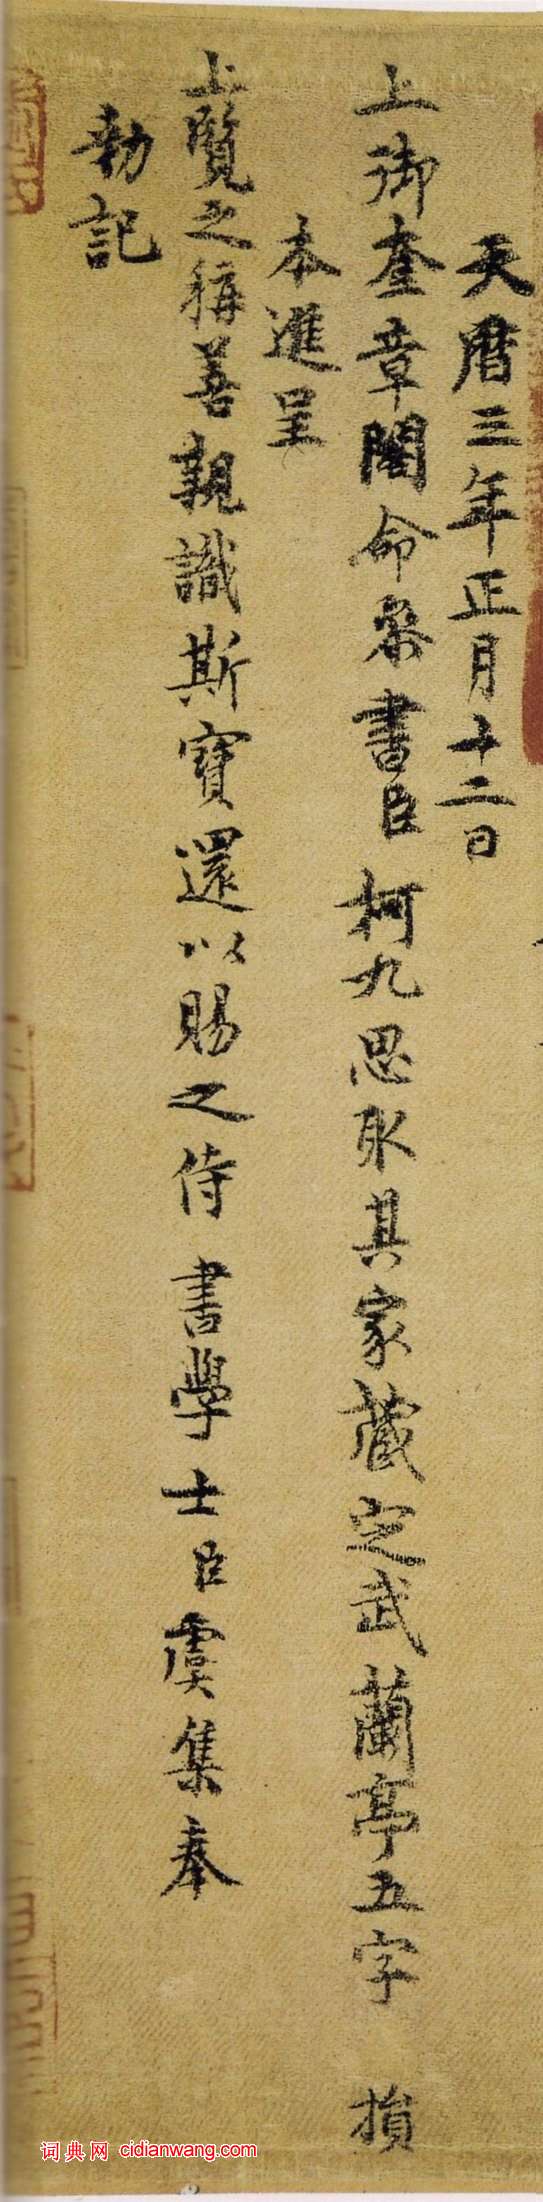 天曆三年正月十二日
上御奎章閣命參書臣柯九思取其家藏定武蘭亭五字損
本進呈
上覽之稱善親識斯寶還以賜之侍書學士臣虞集奉
勅記
词典网 cidianwang.com